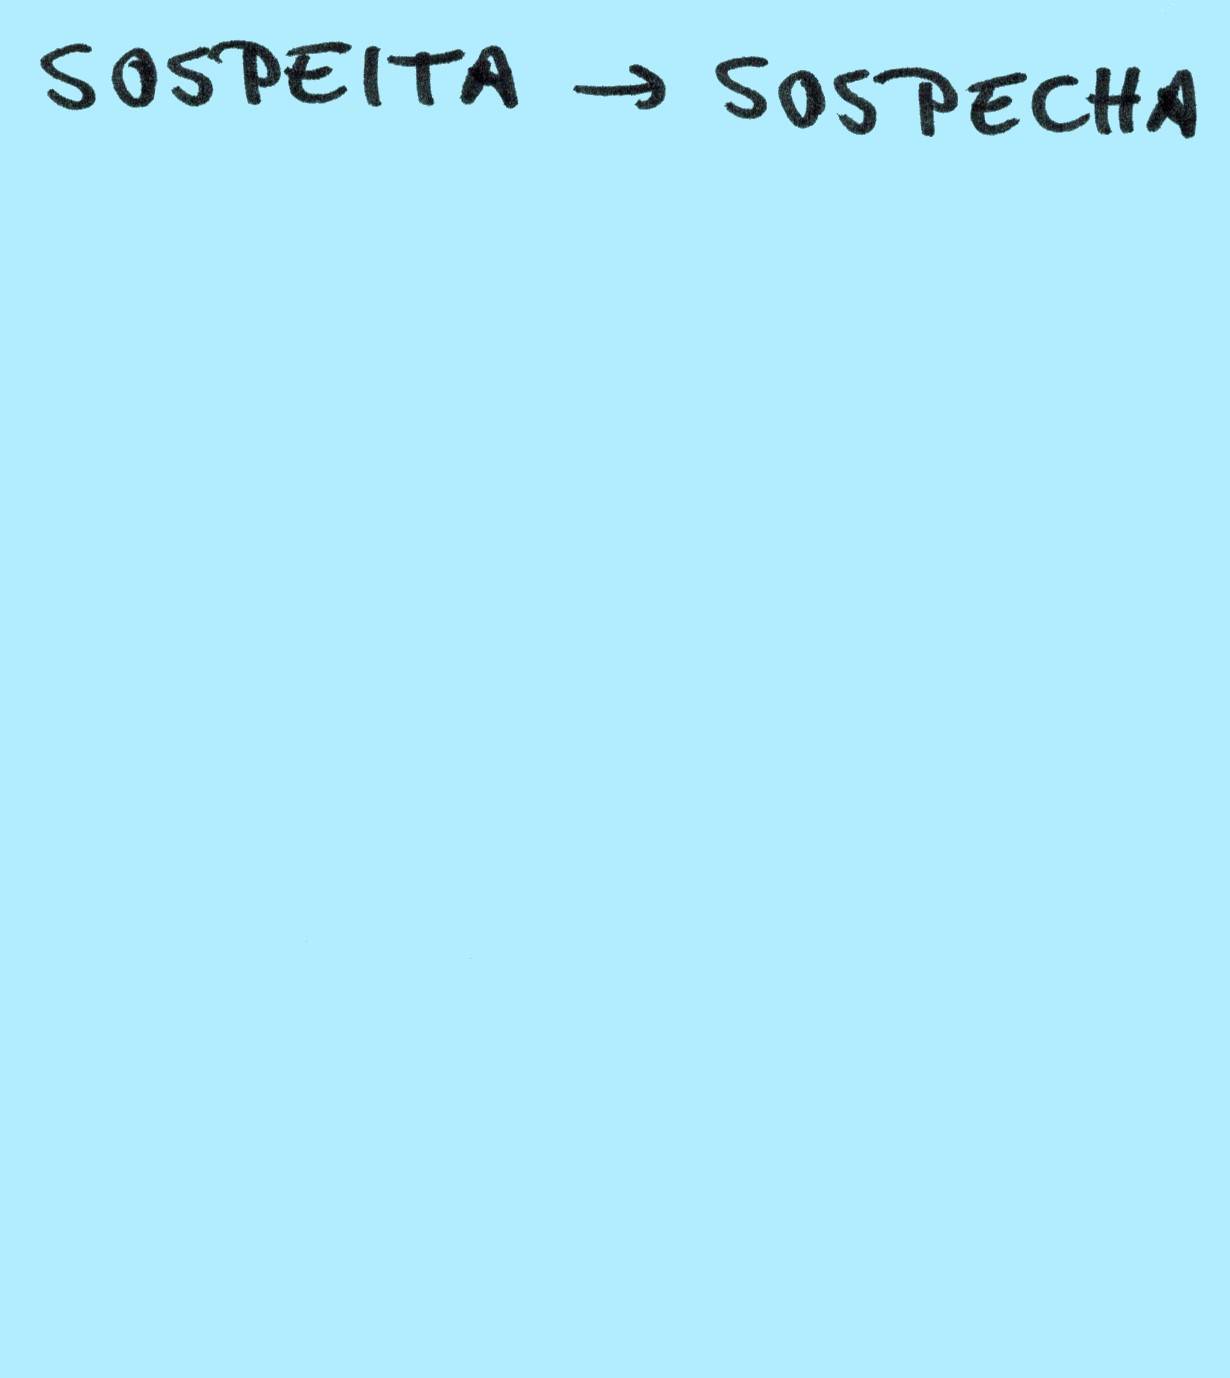 SOSPEITA → SOSPECHA